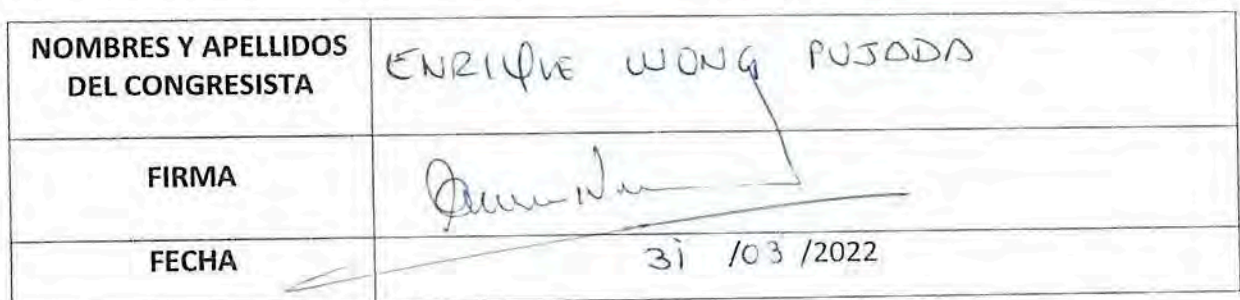 NOMBRES Y APELLIDOS
DEL CONGRESISTA
ENRIQUE WONG PUJADA
FIRMA
FECHA
31 /03 /2022